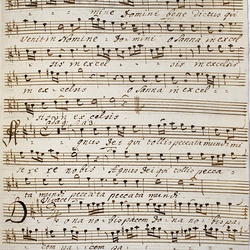 mine Nomine bene dictus qui
venit in Nomine Domini o Sanna in excel
sis in excel sis in excelsis
in ex celsis o Sanna in excel
sis in ex celsis
Agnus dei qui tollis peccata mundi mi
se re re nobis Agnus dei qui tollis pecca
ta mundi peccata peccata mundi
Dona nobis pacem do na nobis pa
cem pa cem